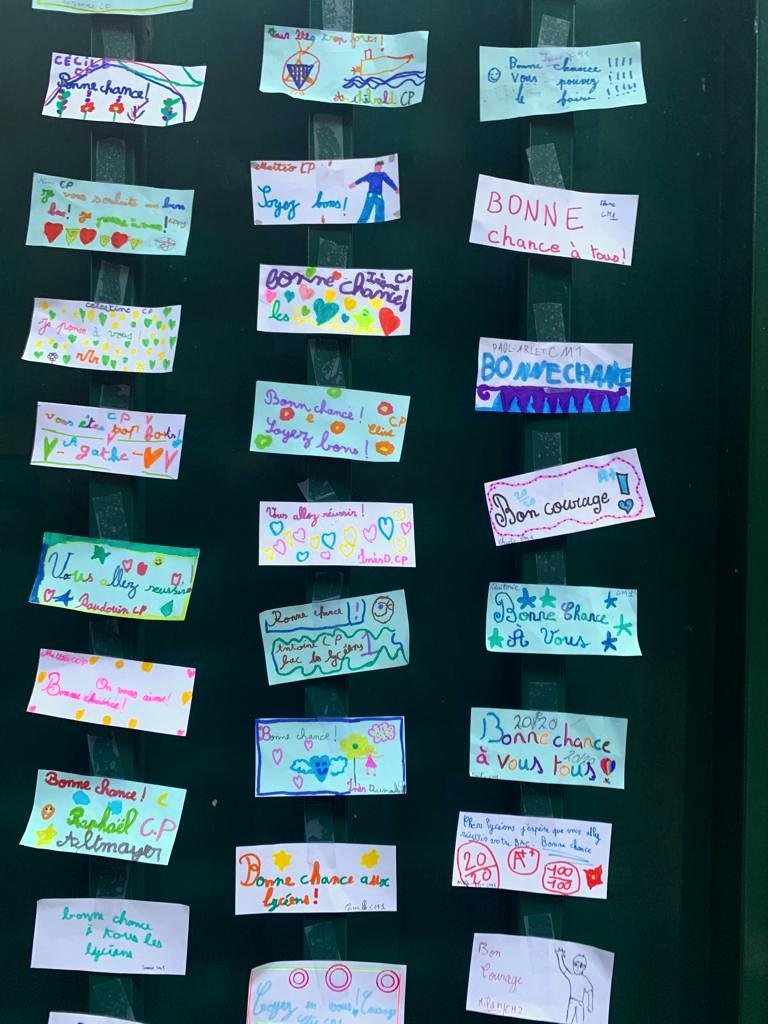 CP
CÉCILE
CP
Bonne chance!
CP
Je vous souhaite un bon
bac! Je pense à vous!
Celestine CP
Je pense à vous!
CP
Vous êtes trop forts!
Agathe
Vous allez réussir
Baudouin CP
On vous aime!
Bonne chance!
Bonne chance!
Raphaël C.P
Altmayer
bonne chance
à tous les
lycéens
Vous êtes trop forts!
Thibald CP
Mattéo CP
Soyez bons!
Irène CP
Bonne chance!
les
Bonne chance!
C.P
e
Elise
Soyez bons!
Vous allez réussir!
Inès D. CP
Bonne chance!
Antoine CP
bac les lycéens
Bonne chance!
Inès
Bonne chance aux
lycéens!
CM1
Croyez en vous! Courage
Bonne chance !!!!
Vous pouvez
le faire !!!!!
BONNE
CM1
chance à tous!
PAUL-ARLET CM1
BONNE CHANE
A+
Bon courage!
CM1
Bonne Chance
À Vous
20/20
Bonne chance
20/20
à vous tous!
Chers lycéens j'espère que vous allez
réussir votre BAC. Bonne chance
20/20
A++
100/100
Bon
Courage
CM2